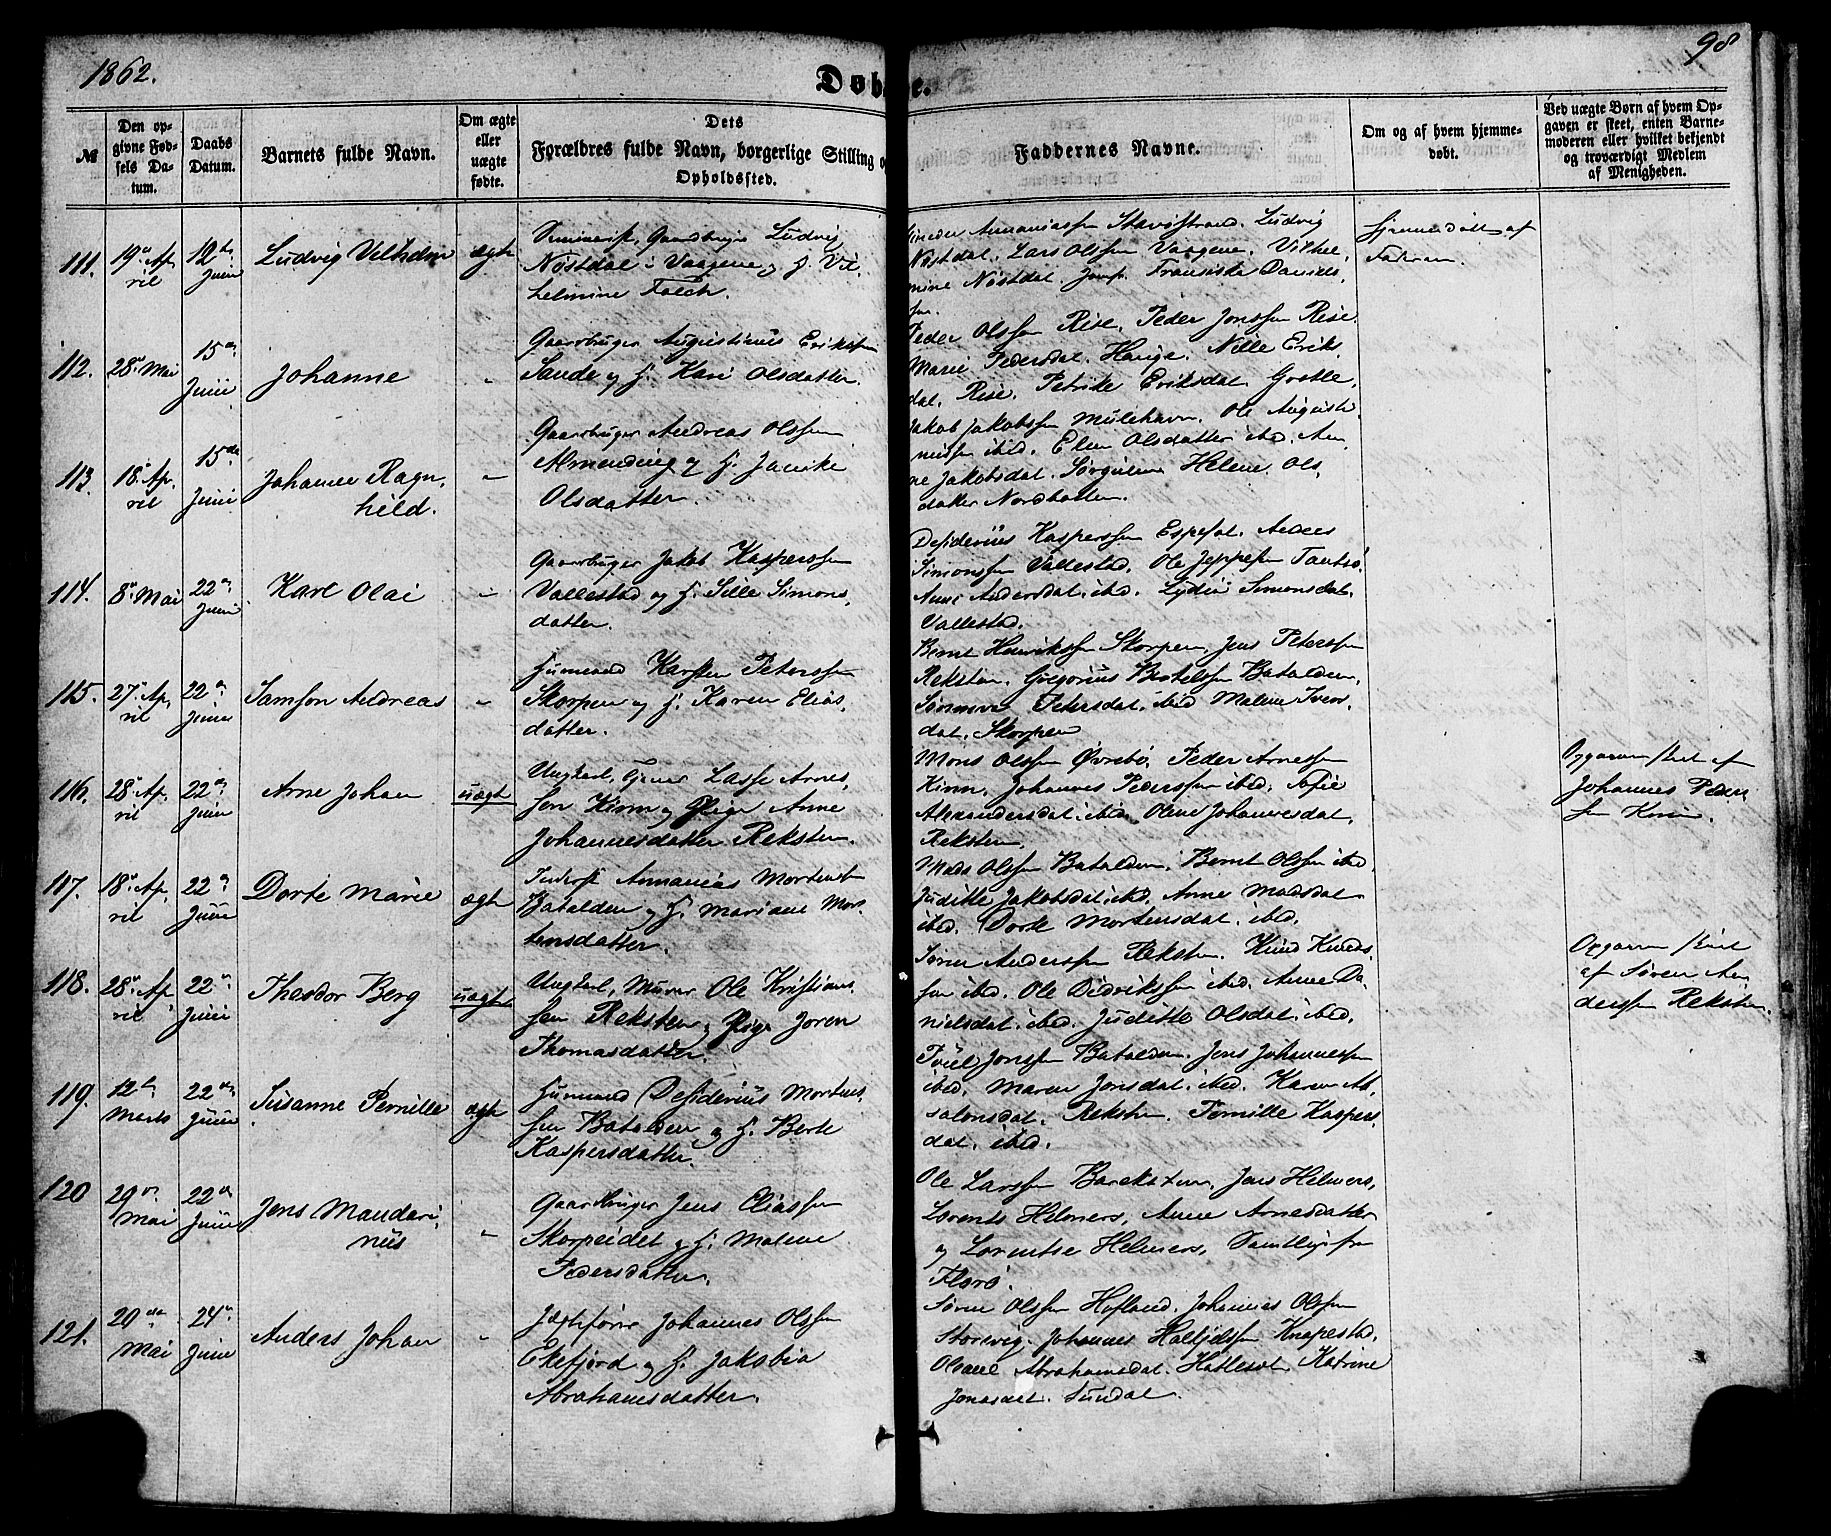 1862.
Døbte.
98
№
Den opgivne Fødsels Datum.
Daabs Datum.
Barnets fulde Navn.
Om ægte eller uægte fødte.
Dets Forældres fulde Navn, borgerlige Stilling og Opholdssted.
Faddernes Navne.
Om og af hvem hjemmedøbt.
Ved uægte Børn af hvem Opgaven er skeet, enten Barnemoderen eller hvilket bekjendt og troværdigt Medlem af Menigheden.
111.
19de April
12te Juni
Ludvig Vilhelm
ægte
Seminarist, Gaardbruger Ludvig
Nøstdal i Vaagene og H. Vil
helmine Falch.
Ananiassen Stavøstrand. Ludvig
Nøstdal. Lars Olssen Vaagene. Vilhel
mine Nøstdal. Jomf. Fransiska Daniels
sen.
Hjemmedøbt af
Faderen.
112.
28de Mai
15de Juni
Johanne
"
Gaardbruger Augustinus Erikssen
Sande og H. Kari Olsdatter.
Peder Olssen Rise. Peder Jonssen Rise.
Marie Pedersdat. Hauge. Nille Eriks
dat. Rise. Petrike Eriksdat. Grotle.
113.
18de April
15de Juni
Johanne Ragn
hild.
"
Gaardbruger Andreas Olssen
Almending og H. Janike
Olsdatter.
Jakob Jakobssen Mulehavn. Ole Augusti
nussen ibid. Elen Olsdatter ibid. An
ne Jakobsdat. Helene Ols
datter Nordbotten.
114.
8de Mai
22de Juni
Karl Olai
"
Gaardbruger Jakob Kasperssen
Vallestad og H. Sille Simons
datter.
Desiderius Kasperssen Espeset. Anders
Simonssen Vallestad. Ole Jeppesen Tansø.
Anne Andersdat. ibid. Lydia Simonsdat.
Vallestad.
115.
27de April
22de Juni
Samson Andreas
"
Huusmand Karsten Peterssen
Skorpen og H. Karen Elias
datter.
Bernt Henrikssen Skorpen. Jens Peterssen
Reksten. Gregorius Bertelssen Batalden.
Petersdat. ibid. Malene Iver
dat. Skorpen
116.
28de April
22de Juni
Arne Johan
uægte
Ungkarl, Tjener Lasse Arnes
sen Kinn og Pige Anne
Johannesdatter Reksten.
Mons Olssen Øvrebø. Peder Arnessen
Kinn. Johannes Pederssen ibid. Sofie
Alexandersdat. ibid. Oline Johannesdat.
Reksten.
Opgaven skeet af
Johannes Peder
sen Kinn.
117.
18de April
22de Juni
Dorte Marie
ægte
Inderst Annanias Mortens
Batalden og H. Mariane Mor
tensdatter.
Mads Olssen Batalden. Bernt Olssen ibid.
Juditte Jakobsdat. ibid. Anne Madsdat.
ibid. Dorte Mortensdat. ibid.
118.
28de April
22de Juni
Theodor Berg
uægte
Ungkarl, Murer Ole Kristians
sen Reksten og Pige Joren
Thomasdatter.
Søren Anderssen Reksten. Knud Knuds
sen ibid. Ole Didrikssen ibid. Anne Da
nielsdat. ibid. Juditte Olsdat. ibid.
Opgaven skeet
af Søren An
derssen Reksten.
119.
12te Marts
22de Juni
Susanne Pernille
ægte
Huusmand Desiderius Mortens
sen Batalden og H. Berte
Kaspersdatter.
Poul Jonssen Batalden. Jens Johannessen
ibid. Maren Jonsdat. ibid. Karen Ab
salonsdat. Reksten. Pernille Kaspers
dat. ibid.
120
29de Mai
22de Juni
Jens Mandari
nus
"
Gaardbruger Jens Eliassen
Skorpeidet og H. Malene
Pedersdatter.
Ole Larssen Bareksten. Jens Helmers,
Lorents Helmers, Anne Arnesdatter
og Lorentse Helmers, Samtlige fra
Florø.
121.
20de Mai
24de Juni
Anders Johan
"
Jægtefører Johannes Olssen
Eikefjord og H. Jakobia
Abrahamsdatter.
Søren Olssen Hofland. Johannes Olssen
Storevig. Johannes Knapestad.
Abrahamsdat. Hatleset. Katrine
Jonasdat. Sundal.